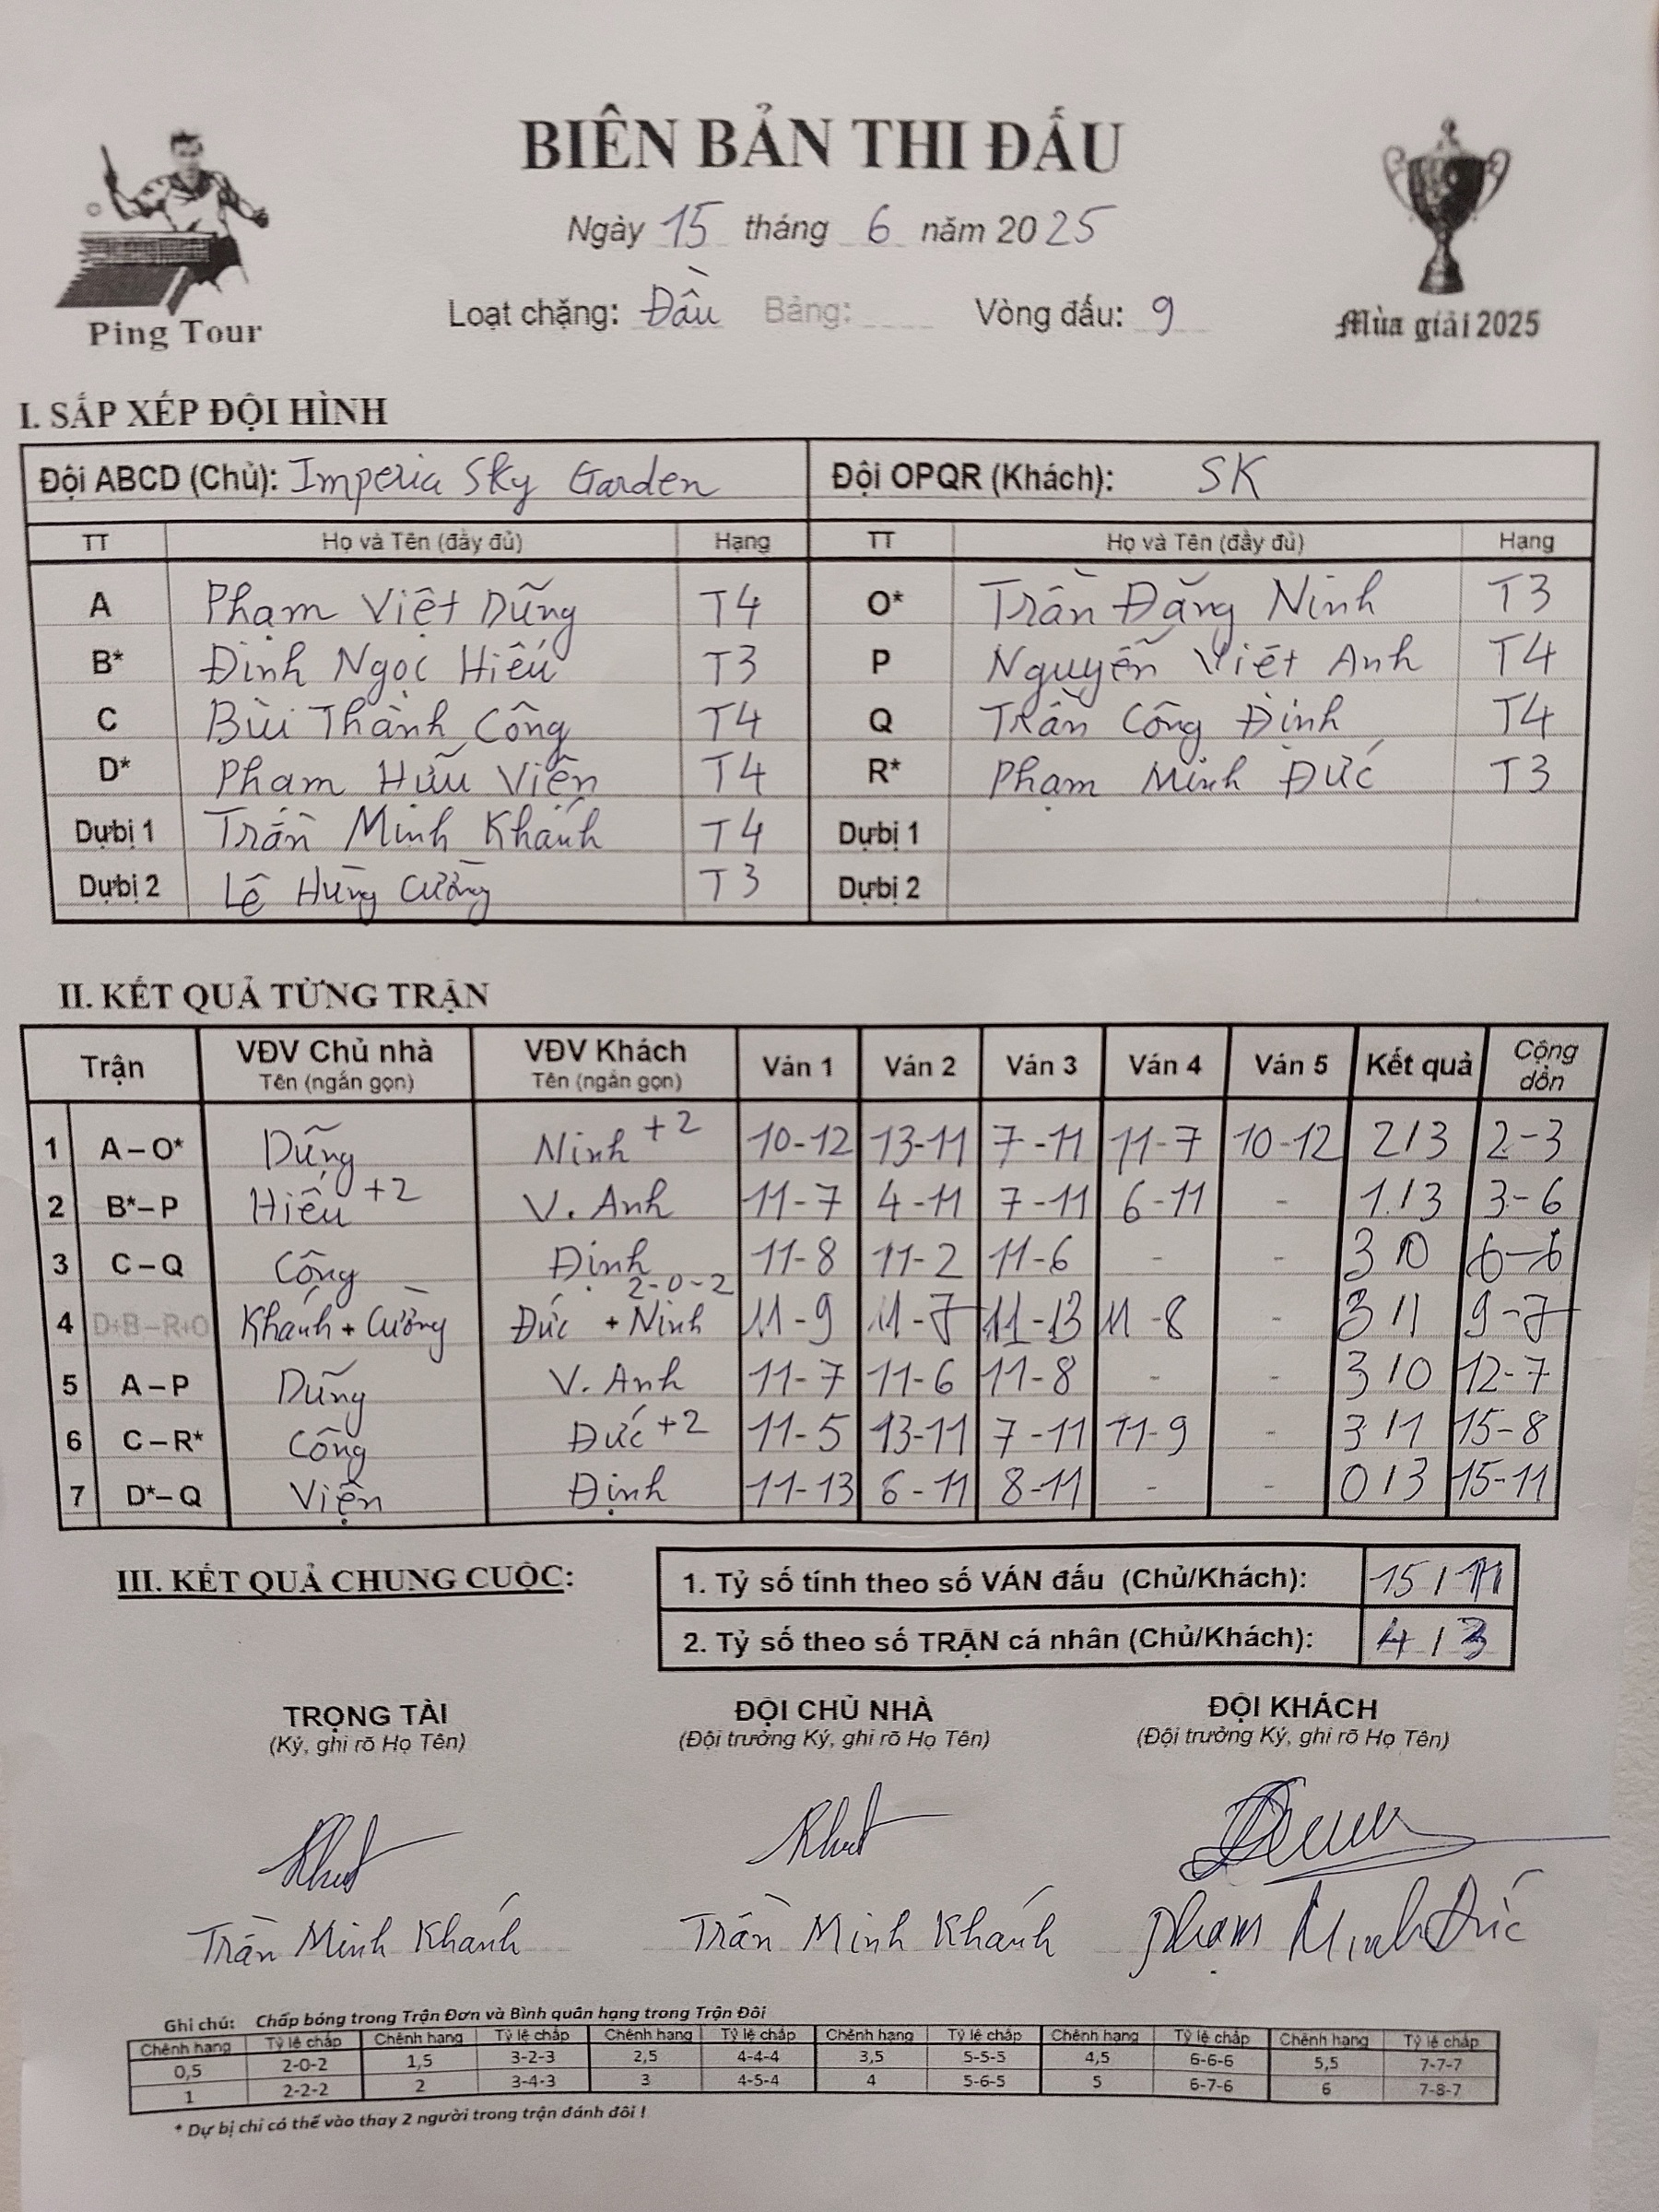 BIÊN BẢN THI ĐẤU
Ngày 15 tháng 6 năm 2025
Loạt chặng: Đầu Bảng: Vòng đấu: 9
Ping Tour
Mùa giải 2025
I. SẮP XẾP ĐỘI HÌNH
Đội ABCD (Chủ): Imperia Sky Garden Đội OPQR (Khách): SK
TT Họ và Tên (đầy đủ) Hạng TT Họ và Tên (đầy đủ) Hạng
A Phạm Việt Dũng T4 O* Trần Đăng Ninh T3
B* Đinh Ngọc Hiếu T3 P Nguyễn Viết Anh T4
C Bùi Thành Công T4 Q Trần Công Định T4
D* Phạm Hữu Viện T4 R* Phạm Minh Đức T3
Dự bị 1 Trần Minh Khánh T4 Dự bị 1
Dự bị 2 Lê Hùng Cường T3 Dự bị 2
II. KẾT QUẢ TỪNG TRẬN
Trận VĐV Chủ nhà Tên (ngắn gọn) VĐV Khách Tên (ngắn gọn) Ván 1 Ván 2 Ván 3 Ván 4 Ván 5 Kết quả Cộng dồn
1 A – O* Dũng Ninh +2 10-12 13-11 7-11 11-7 10-12 2/3 2-3
2 B* – P Hiếu +2 V. Anh 11-7 4-11 7-11 6-11 - 1/3 3-6
3 C – Q Công Định 11-8 11-2 11-6 - - 3/0 6-6
4 D+B – R+O Khánh + Cường Đức + Ninh 2-0-2 11-9 11-7 11-13 11-8 - 3/1 9-7
5 A – P Dũng V. Anh 11-7 11-6 11-8 - - 3/0 12-7
6 C – R* Công Đức +2 11-5 13-11 7-11 11-9 - 3/1 15-8
7 D* – Q Viện Định 11-13 6-11 8-11 - - 0/3 15-11
III. KẾT QUẢ CHUNG CUỘC:
1. Tỷ số tính theo số VÁN đấu (Chủ/Khách): 15/11
2. Tỷ số theo số TRẬN cá nhân (Chủ/Khách): 4/3
TRỌNG TÀI ĐỘI CHỦ NHÀ ĐỘI KHÁCH
(Ký, ghi rõ Họ Tên) (Đội trưởng Ký, ghi rõ Họ Tên) (Đội trưởng Ký, ghi rõ Họ Tên)
Trần Minh Khánh Trần Minh Khánh Phạm Minh Đức
Ghi chú: Chấp bóng trong Trận Đơn và Bình quân hạng trong Trận Đôi
Chênh hạng Tỷ lệ chấp Chênh hạng Tỷ lệ chấp Chênh hạng Tỷ lệ chấp Chênh hạng Tỷ lệ chấp Chênh hạng Tỷ lệ chấp Chênh hạng Tỷ lệ chấp
0,5 2-0-2 1,5 3-2-3 2,5 4-4-4 3,5 5-5-5 4,5 6-6-6 5,5 7-7-7
1 2-2-2 2 3-4-3 3 4-5-4 4 5-6-5 5 6-7-6 6 7-8-7
* Dự bị chỉ có thể vào thay 2 người trong trận đánh đôi !